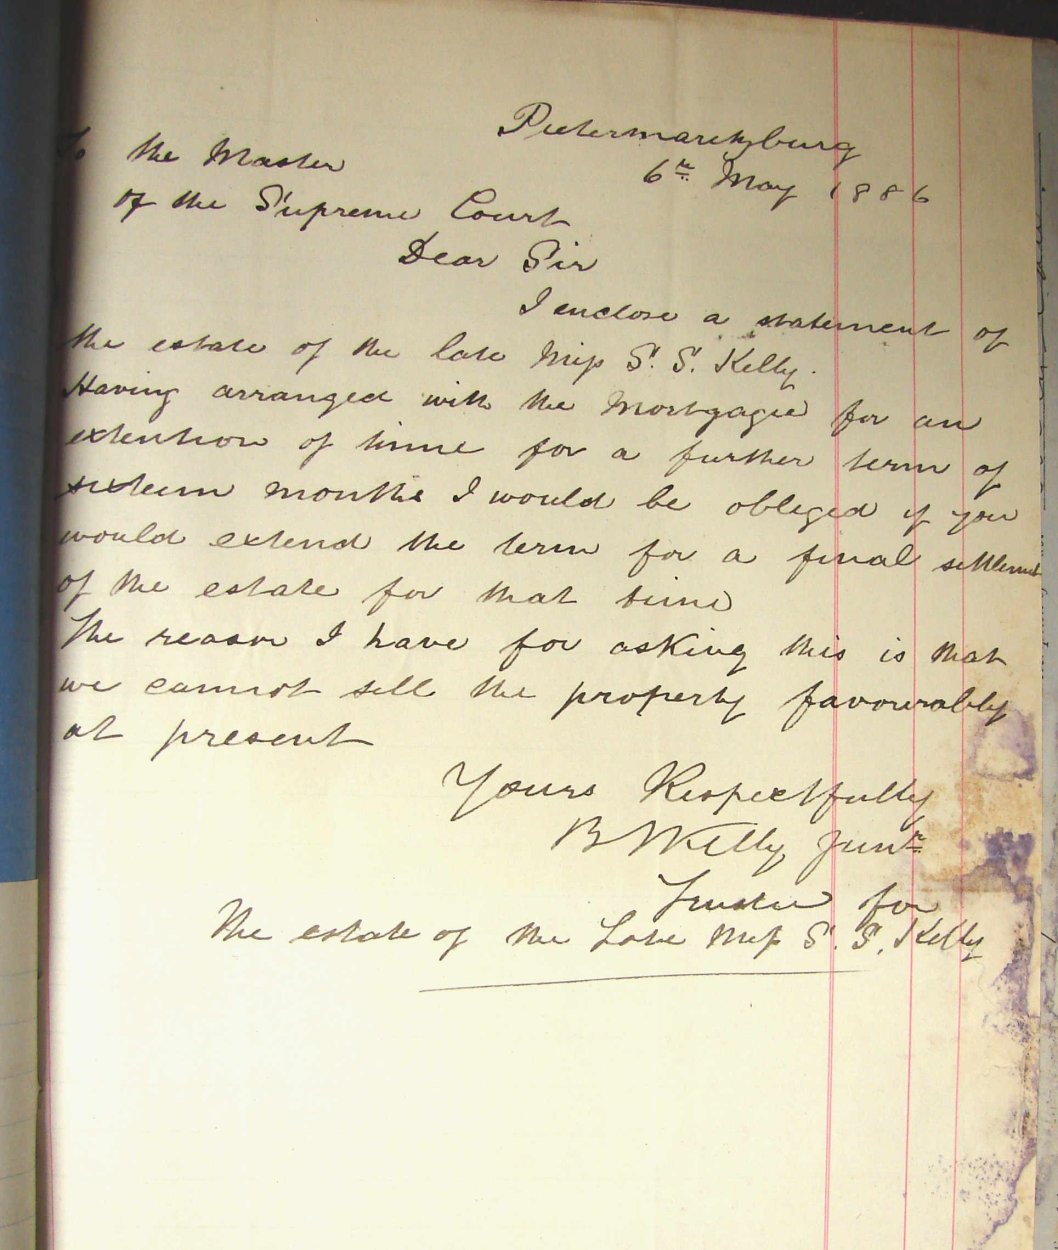 Pietermaritzburg
6th May 1886
To the Master
of the Supreme Court
Dear Sir
I enclose a statement of
the estate of the late Miss S. S. Kelly.
Having arranged with the Mortgagee for an
extention of time for a further term of
sixteen months I would be obliged if you
would extend the term for a final settlement
of the estate for that time
The reason I have for asking this is that
we cannot sell the property favourably
at present
Yours Respectfully
B W Kelly Junr
Trustee for
The estate of the Late Miss S. S. Kelly